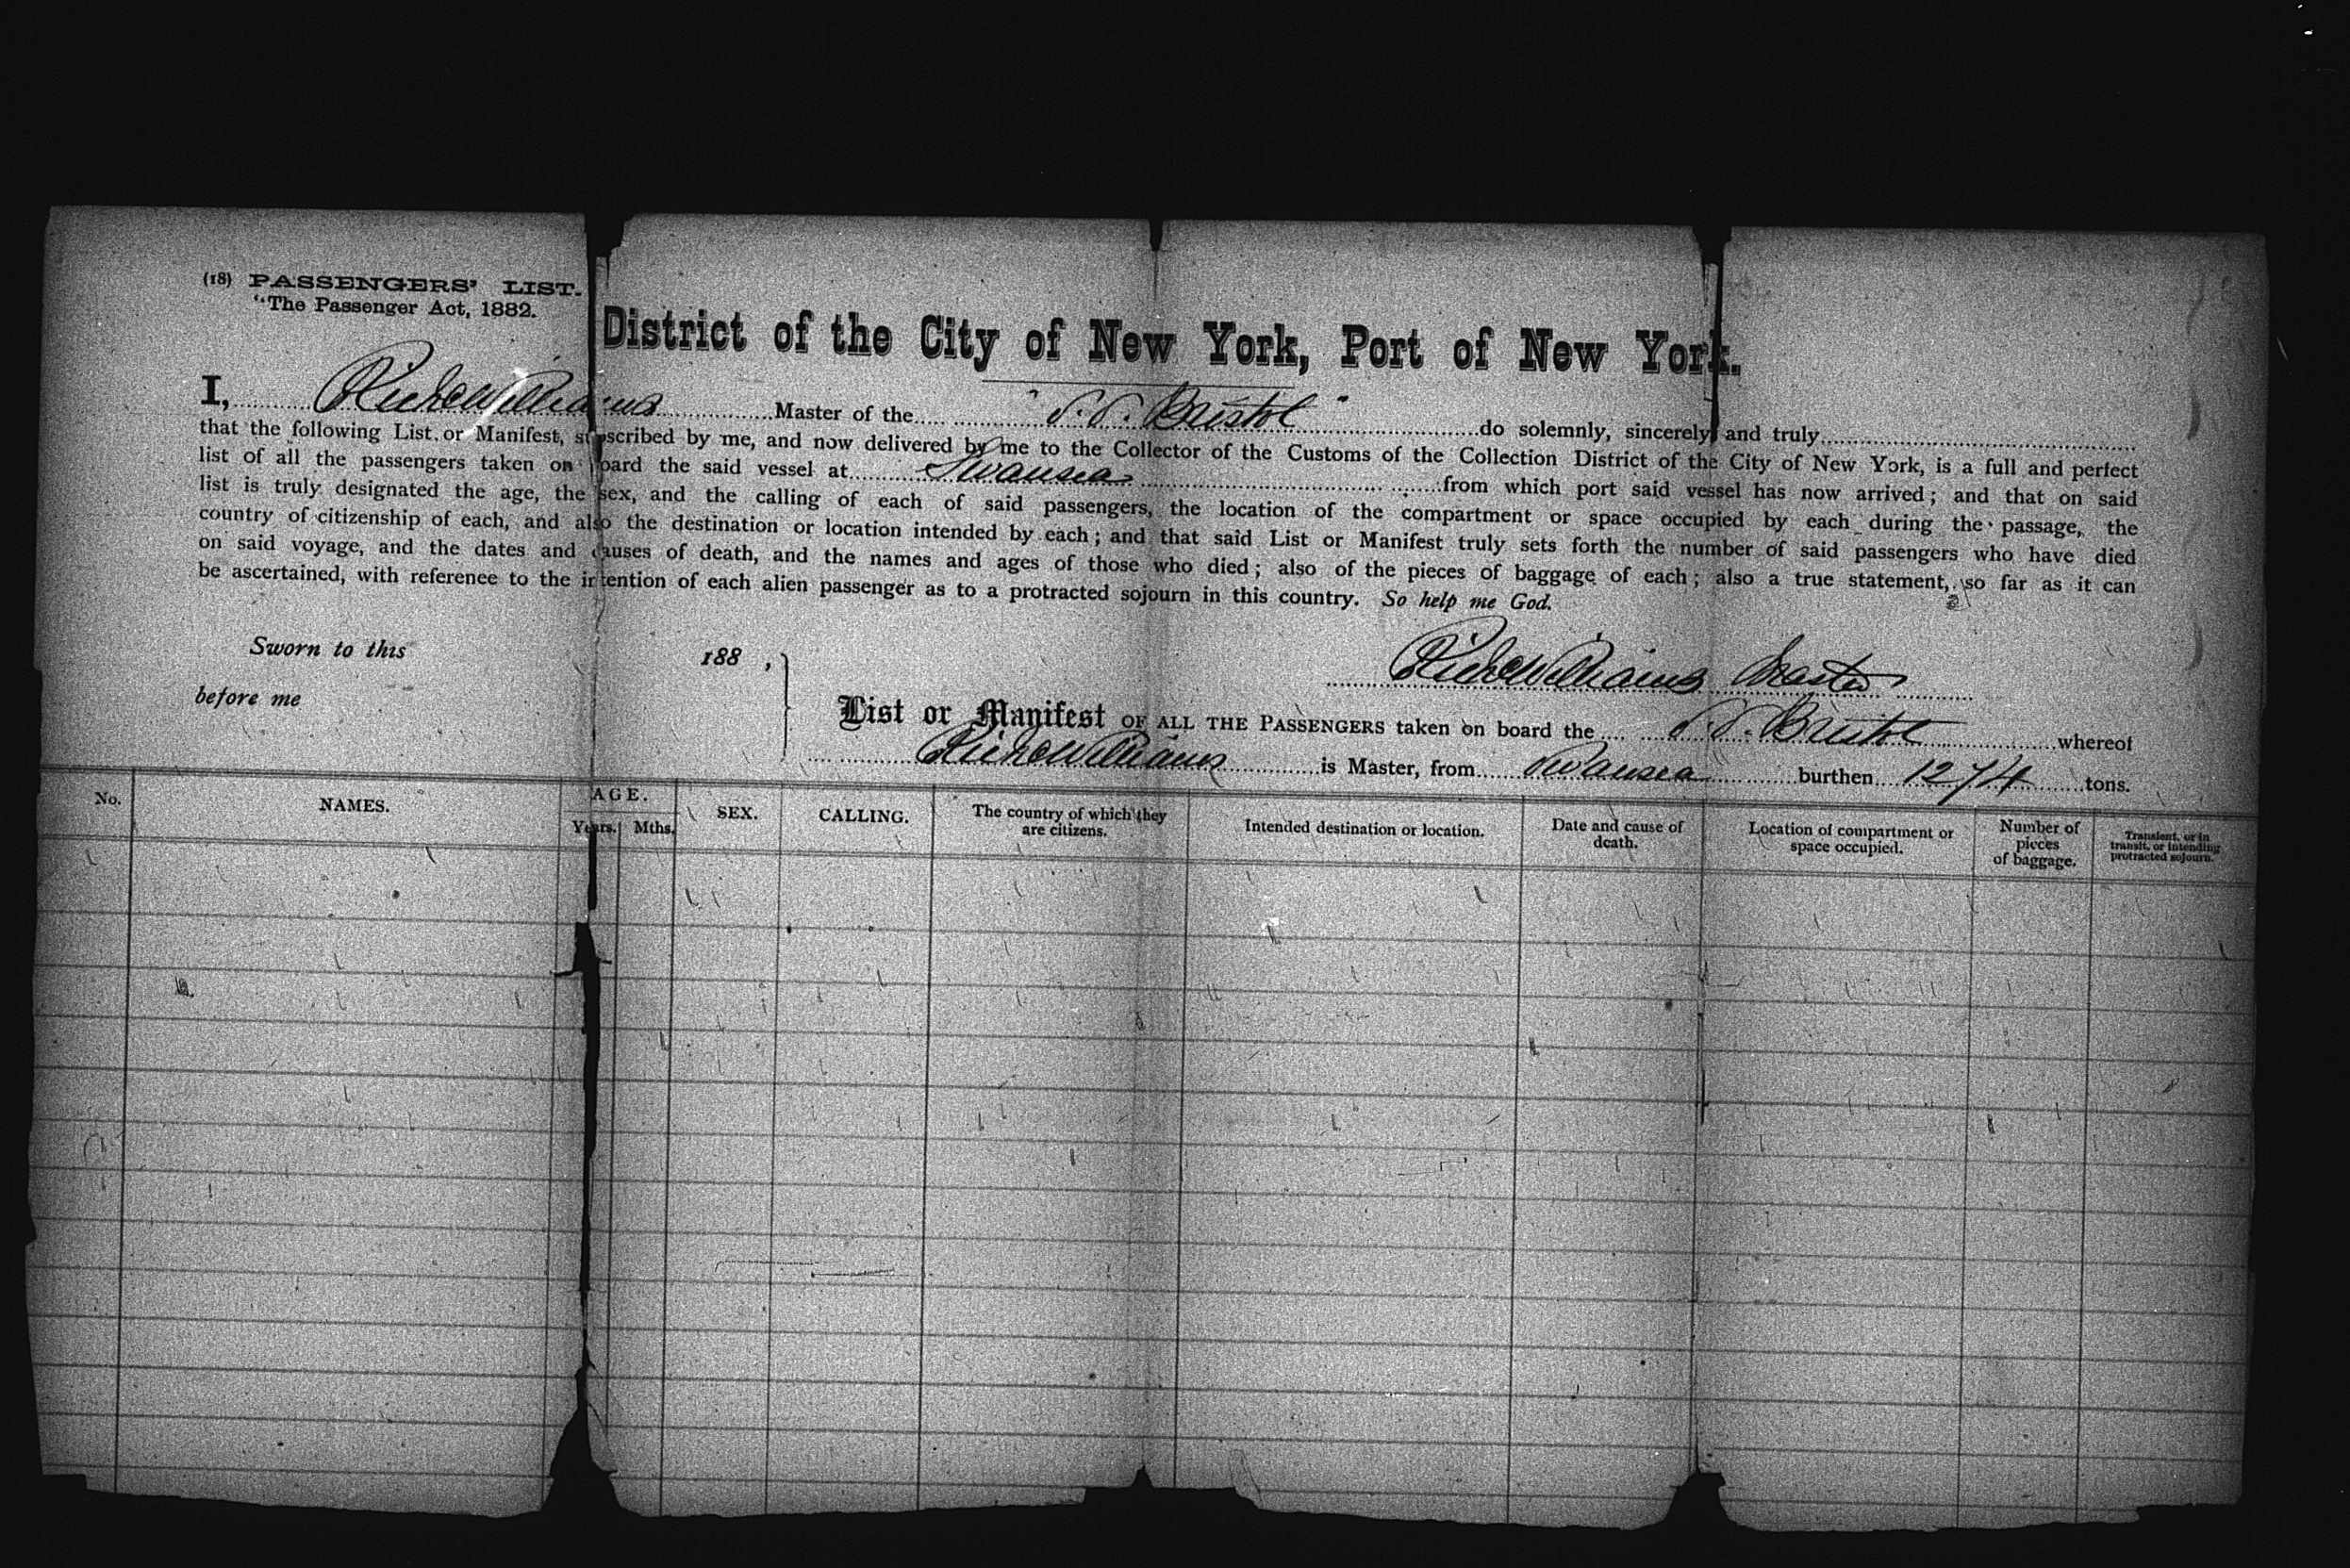 (18) PASSENGERS' LIST.
"The Passenger Act, 1882.
District of the City of New York, Port of New York.
I, Richd Williams Master of the "S.S. Bristol" do solemnly, sincerely and truly
that the following List or Manifest, subscribed by me, and now delivered by me to the Collector of the Customs of the Collection District of the City of New York, is a full and perfect
list of all the passengers taken on board the said vessel at Swansea from which port said vessel has now arrived; and that on said
list is truly designated the age, the sex, and the calling of each of said passengers, the location of the compartment or space occupied by each during the passage, the
country of citizenship of each, and also the destination or location intended by each; and that said List or Manifest truly sets forth the number of said passengers who have died
on said voyage, and the dates and causes of death, and the names and ages of those who died; also of the pieces of baggage of each; also a true statement, so far as it can
be ascertained, with reference to the intention of each alien passenger as to a protracted sojourn in this country. So help me God.
Sworn to this 188 ,
before me
Richd Williams Master
List or Manifest OF ALL THE PASSENGERS taken on board the S.S. Bristol whereof
Richd Williams is Master, from Swansea burthen 1274 tons.
No. NAMES. AGE. Years. Mths. SEX. CALLING. The country of which they are citizens. Intended destination or location. Date and cause of death. Location of compartment or space occupied. Number of pieces of baggage. Transient, or in transit, or intending protracted sojourn.